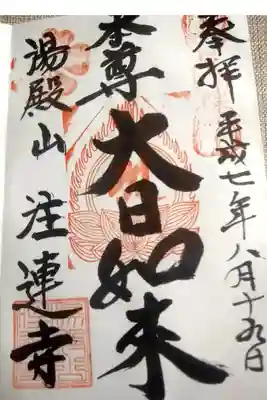 奉拝 平成七年八月十九日
本尊 大日如来
湯殿山 注連寺